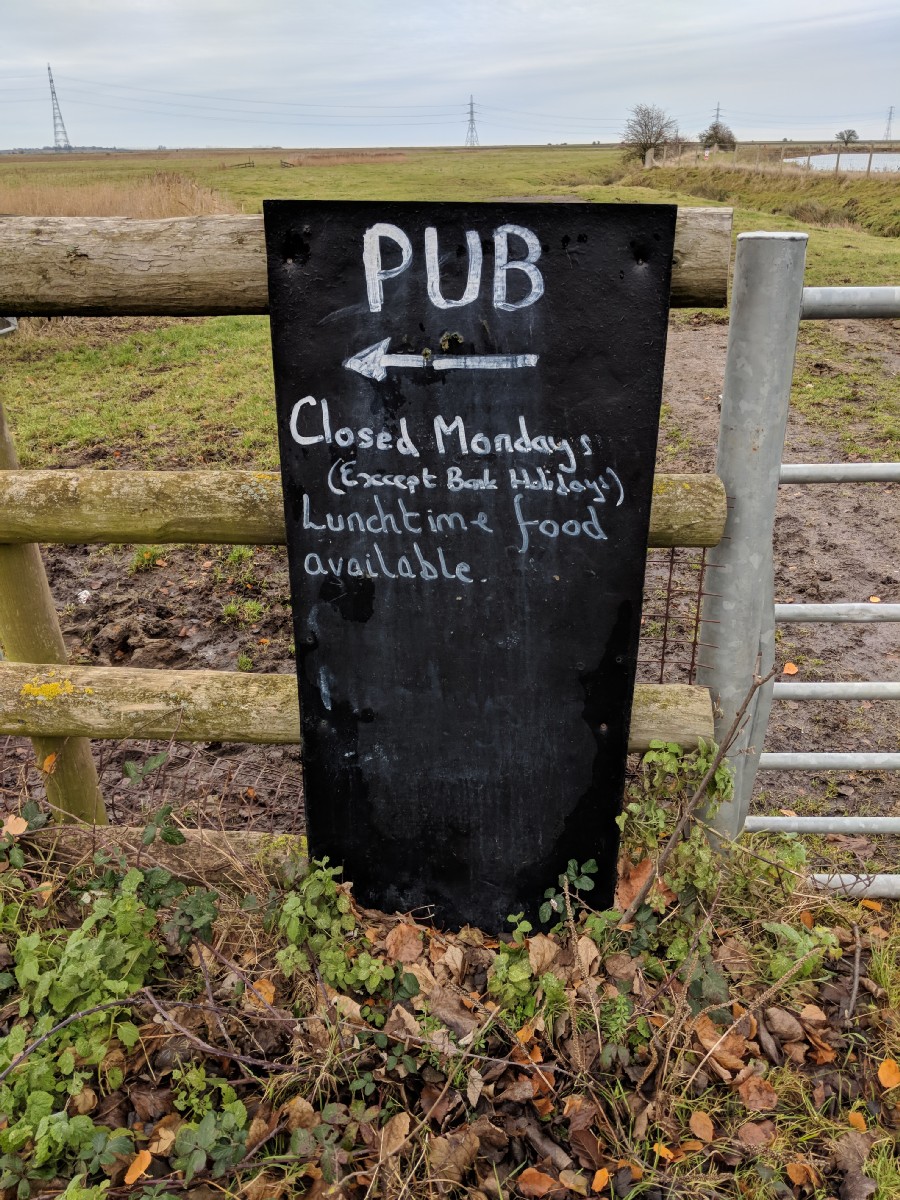 PUB
Closed Mondays
(Except Bank Holidays)
Lunchtime food
available.